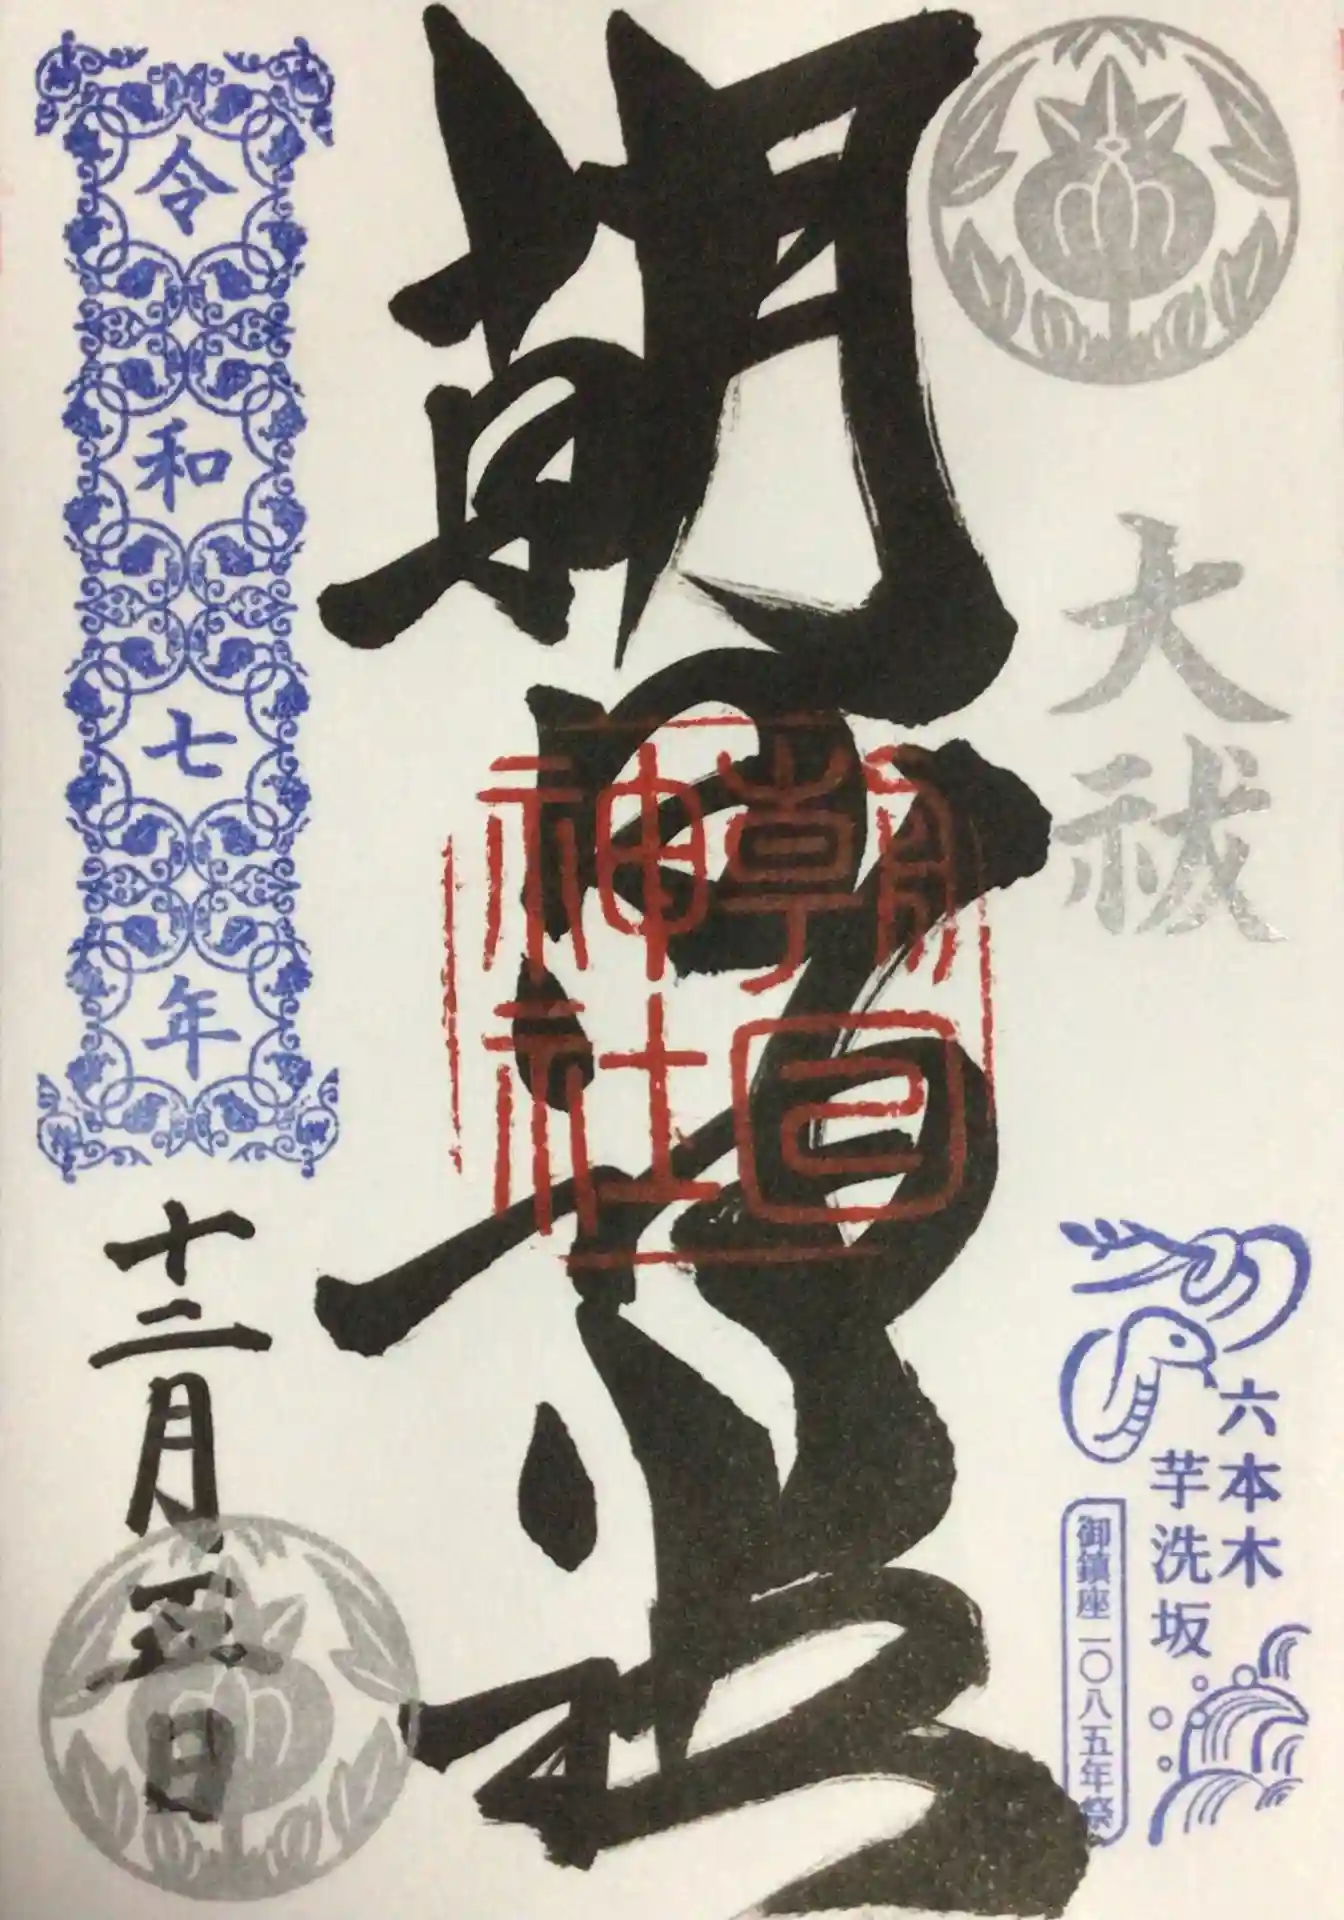 大祓
六本木
芋洗坂
御鎮座一〇八五年祭
朝日神社
朝日
神社
令和七年
十二月五日